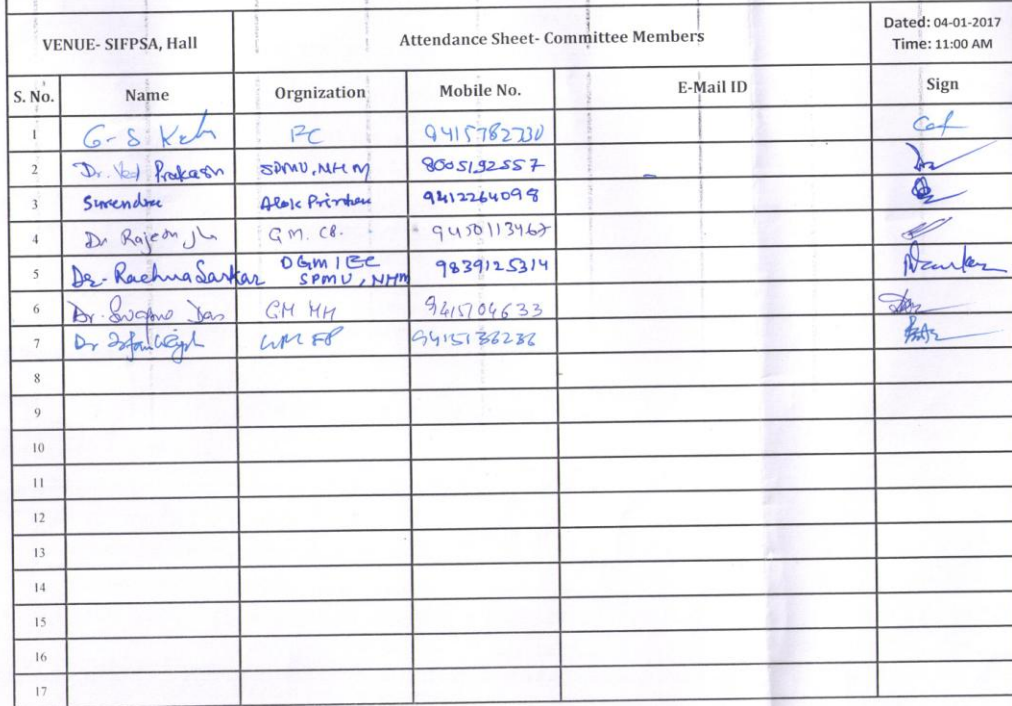 VENUE- SIFPSA, Hall
Attendance Sheet- Committee Members
Dated: 04-01-2017
Time: 11:00 AM
S. No. Name Orgnization Mobile No. E-Mail ID Sign
1 G-S 9415782730
2 Dr. Ved Prakash SPMU, NHM 8005192557
3 Surendra Alok Printers 9412264098
4 Dr Rajesh Jha G.M. 9450113467
5 Dr. Rachna Sarkar DGM IEC
SPMU, NHM 9839125314
6 Dr. Swapna Das GM MH 9415704633
7 Dr GM FP
8
9
10
11
12
13
14
15
16
17